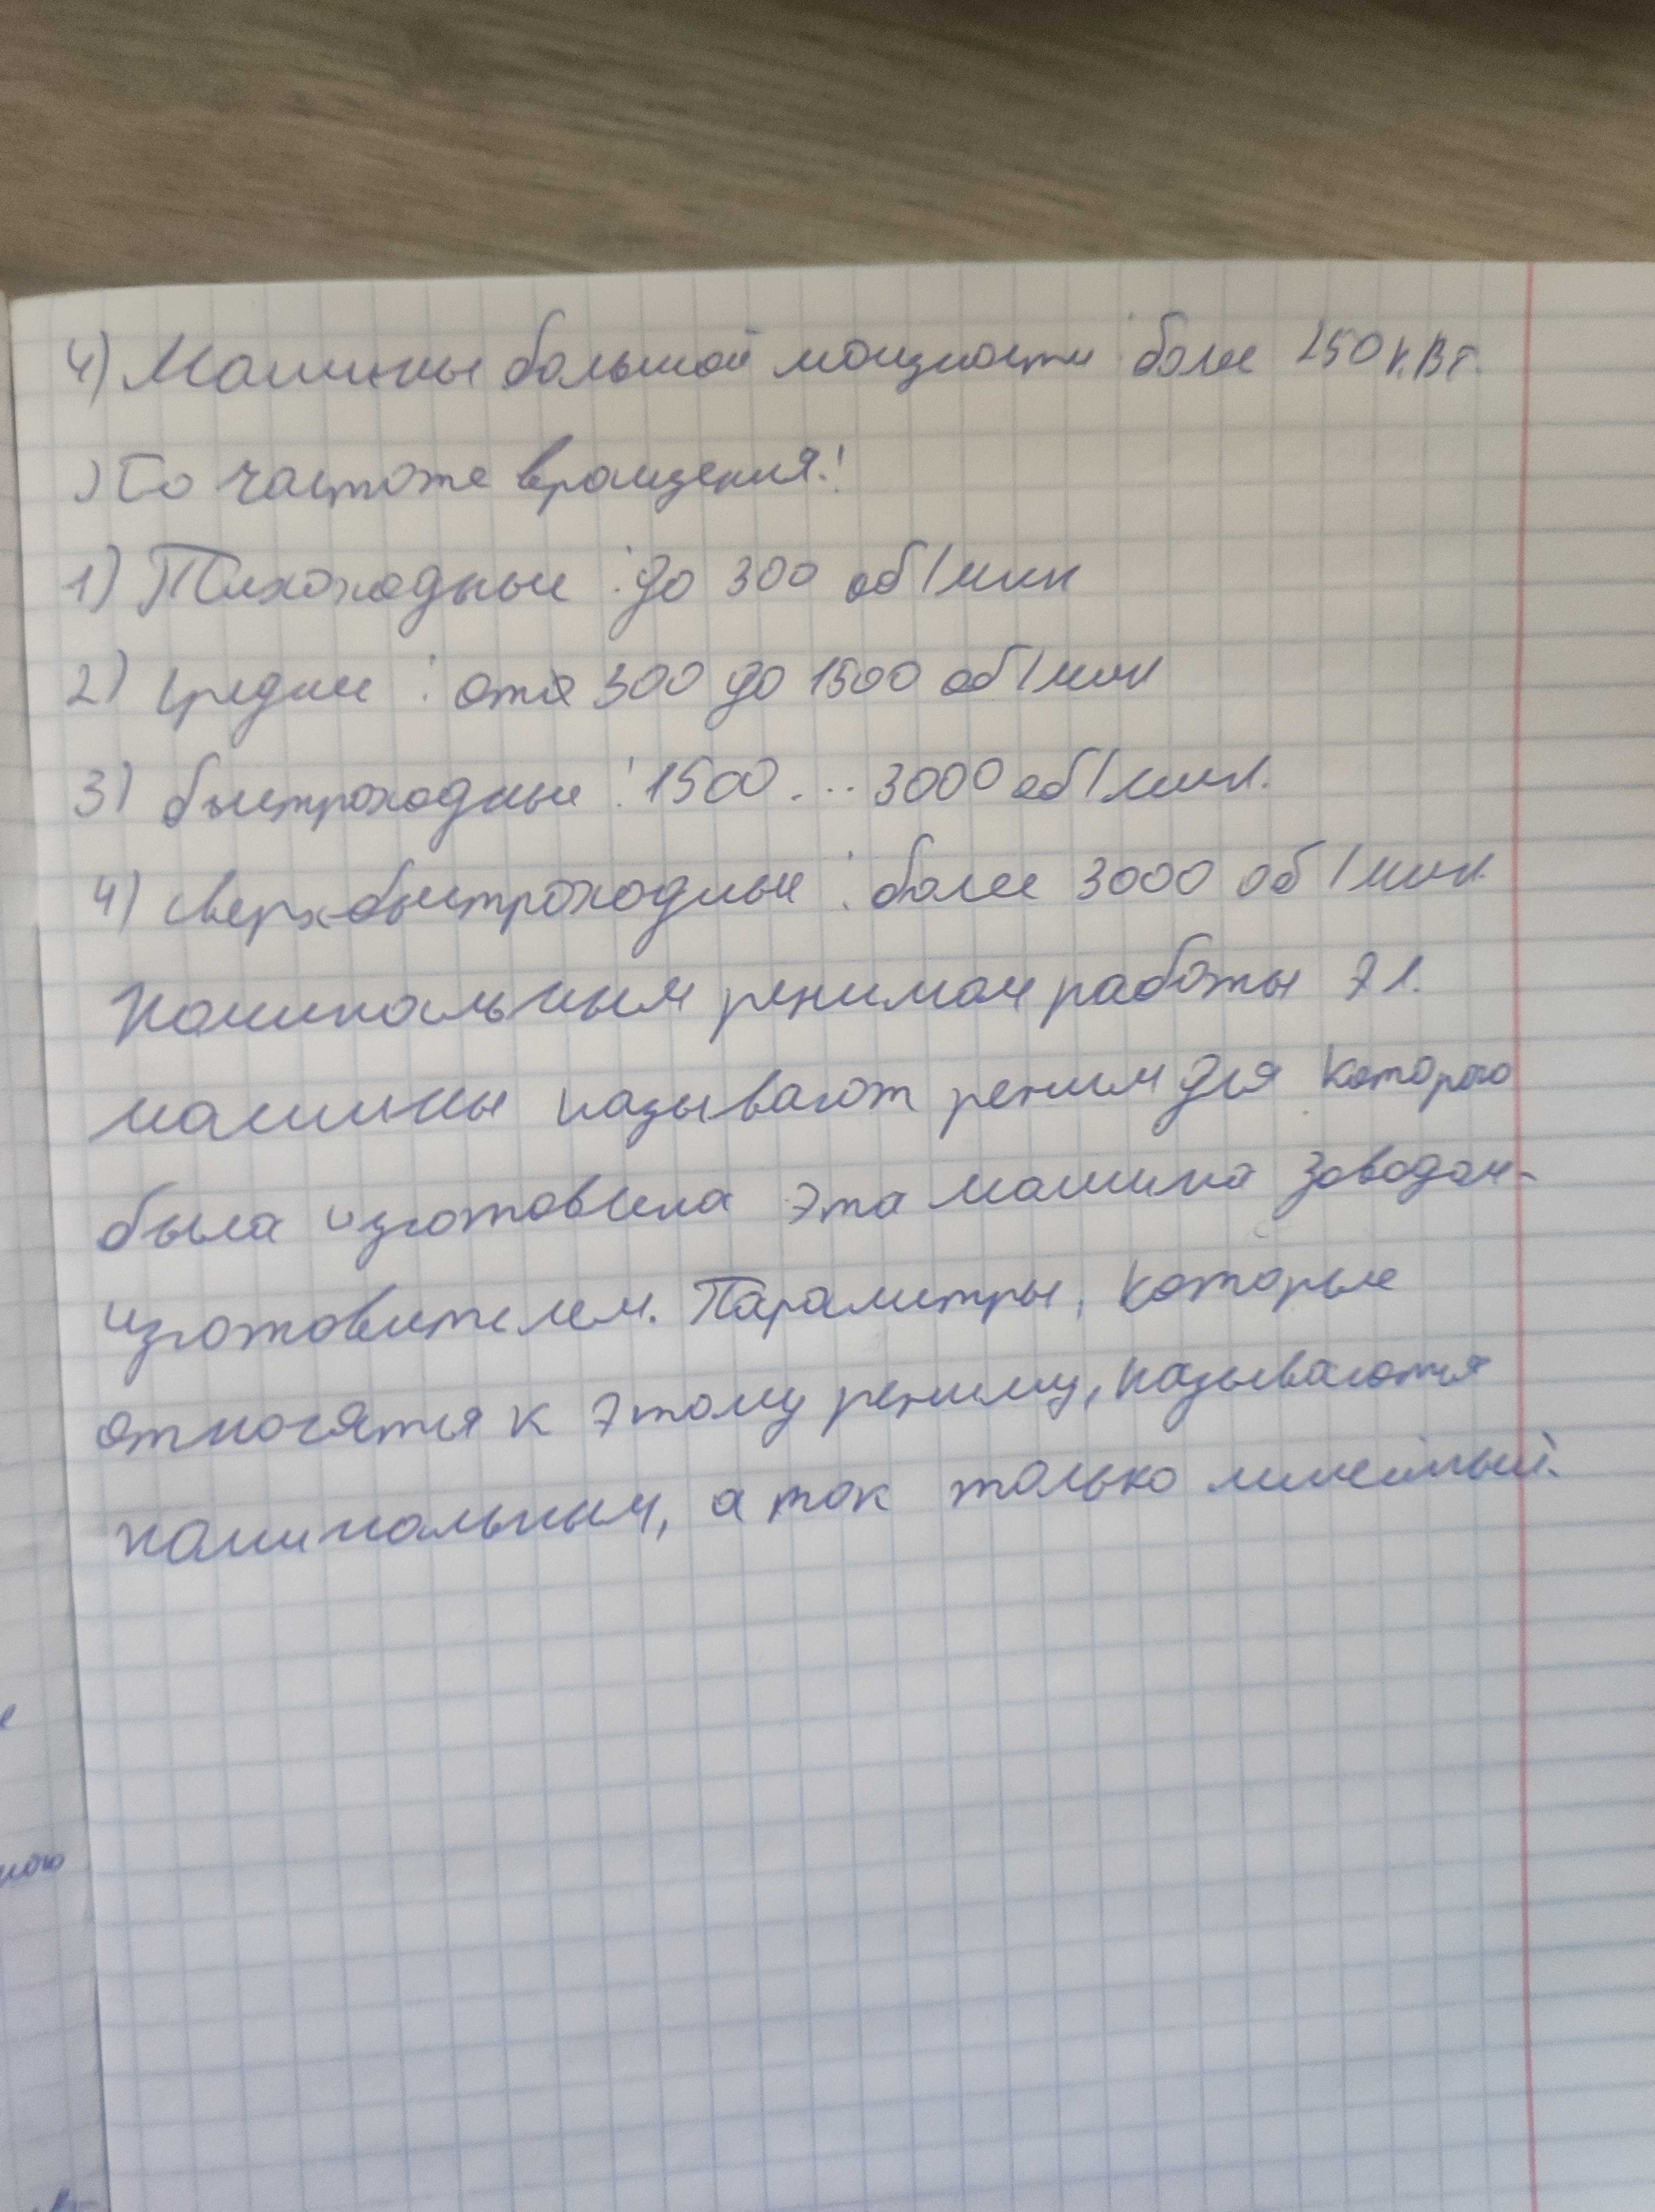 4) Машины большой мощности : более 250 кВт.
) По частоте вращения:
1) Тихоходные : до 300 об/мин
2) средние : от 300 до 1500 об/мин
3) быстроходные : 1500 ... 3000 об/мин.
4) сверхбыстроходные : более 3000 об/мин.
Номинальным режимом работы эл.
машины называют режим для которого
была изготовлена эта машина заводом-
изготовителем. Параметры, которые
относятся к этому режиму, называются
номинальным, а ток только линейный.
ного